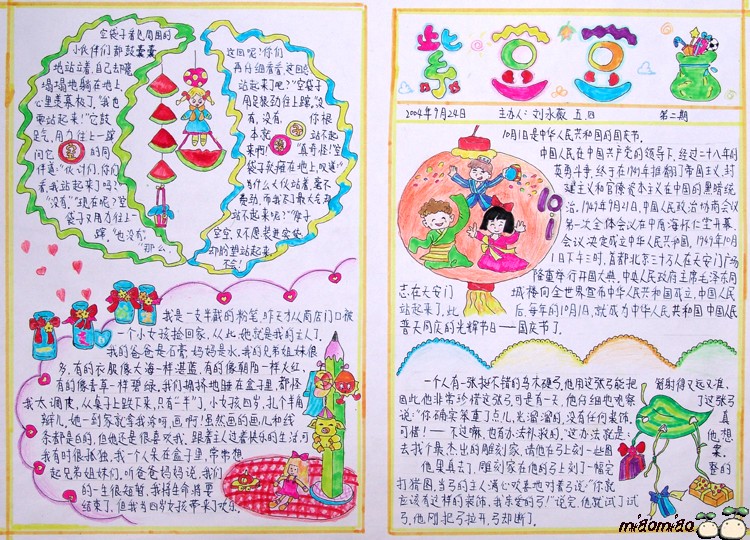 空袋子看见周围的
小伙伴们都鼓囊囊
地站立着,自己却瘪
塌塌地躺在地上,
心里羡慕极了,“我也
要站起来!”它鼓
足气,用力往上一蹿
问它的同
伴道:“伙计们,你们
看我站起来了吗?”
“没有。”“现在呢?”空
袋子又用力往上一
蹿,“也没有。”
“那么,
这回呢?你们
再仔细看看,这回总
站起来了吧?”空袋子
用足狠劲往上蹿,“没
有,没有,你根
本就站不起
来啊!”“真奇怪!”空
袋子软瘫在地上,叹道:“
为什么大伙站着,毫不
费劲,而我下了最大毛力
站不起来呢?”肚子
空空,又不愿装进实货
却盼望站起来,
不会!
我是一支半截的粉笔,昨天才从商店门口被
一个小女孩捡回家,从此,他就是我的主人了。
我的爸爸是石膏,妈妈是水,我的兄弟姐妹很
多,有的衣服像大海一样湛蓝,有的像朝阳一样火红,
有的像青草一样碧绿,我们拥挤地睡在盒子里,都怪
我太调皮,从桌子上跌下来,只有“半”了。小女孩四岁,扎个羊角
辫儿,她一到家就拿我涂呀,画啊!虽然画的画儿和线
条都是白的,但他还是很喜欢我,跟着主人过着快乐的生活可
我有时很孤独,我一个人呆在盒子里,常常想
起兄弟姐妹们,听爸爸妈妈说,我们
的一生很短暂,我将生命将要
结束了,但我为四岁女孩带来了欢乐。
紫豆豆
2004年9月24日 主办人:刘永薇 五.四 第二期
10月1日是中华人民共和国的国庆节。
中国人民在中国共产党的领导下,经过二十八年的
英勇斗争,终于在1949年推翻了帝国主义、封
建主义和官僚资本主义在中国的黑暗统
治,1949年9月21日,中国人民政治协商会议
第一次全体会议在中南海怀仁堂开幕,
会议决定成立中华人民共和国,1949年10月
1日下午三时,首都北京三十万人在天安门广场
隆重举行开国大典,中央人民政府主席毛泽东同
志在天安门城楼向全世界宣布中华人民共和国成立,中国人民
站起来了,此后,每年的10月1日,就成为中华人民共和国中国人民
普天同庆的光辉节日——国庆节了。
10.1
一个人有一张挺不错的乌木硬弓,他用这张弓能把箭射得又远又准,
因此他非常珍惜这张弓,可是有一天,他仔细地观察了这张弓
说:“你确实笨重了点儿,光溜溜的,没有任何装饰,真
可惜!——不过嘛,也有办法补救的。”这办法就是:他想:
去找个最杰出的雕刻家,请他在弓上刻一些图案。
他果真去了,雕刻家在他的弓上刻了一幅完整的
打猎图,当弓的主人满心欢喜地对着弓说:“你就
应该有这样的装饰,我亲爱的弓!”说完,他就试了试
弓,他刚把弓拉开,弓却断了。
miaomiao